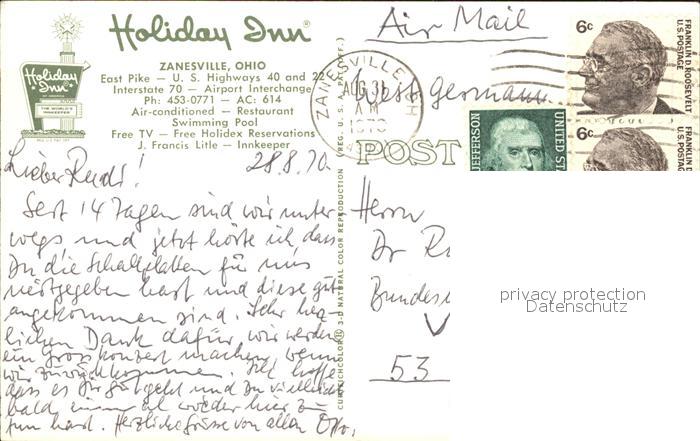 Holiday Inn®
ZANESVILLE, OHIO
East Pike — U. S. Highways 40 and 22
Interstate 70 — Airport Interchange
Ph: 453-0771 — AC: 614
Air-conditioned — Restaurant
Swimming Pool
Free TV — Free Holidex Reservations
J. Francis Litle — Innkeeper
Holiday Inn
28.8.70.
Lieber Rudi!
Seit 14 Tagen sind wir unter-
wegs, und jetzt hörte ich, dass
Du die Schallplatten für uns
mitgegeben hast und diese gut
angekommen sind. Sehr herz-
lichen Dank dafür, wir werden
ein Grosskonzert machen, wenn
wir zurückkommen. Ich hoffe,
dass es Dir gut geht und Du vielleicht
bald einmal wieder hier zu
tun hast. Herzliche Grüsse von allen Otto,
3-D NATURAL COLOR REPRODUCTION (REG. U. S. PAT. OFF.)
Air Mail
West Germany
ZANESVILLE, OH
AUG 31
AM
1970
POST
6c
FRANKLIN D. ROOSEVELT
U.S. POSTAGE
6c
FRANKLIN D. R
U.S. POSTAGE
JEFFERSON
UNITED STA
Herrn
Dr R
Bundes
53
privacy protection
Datenschutz